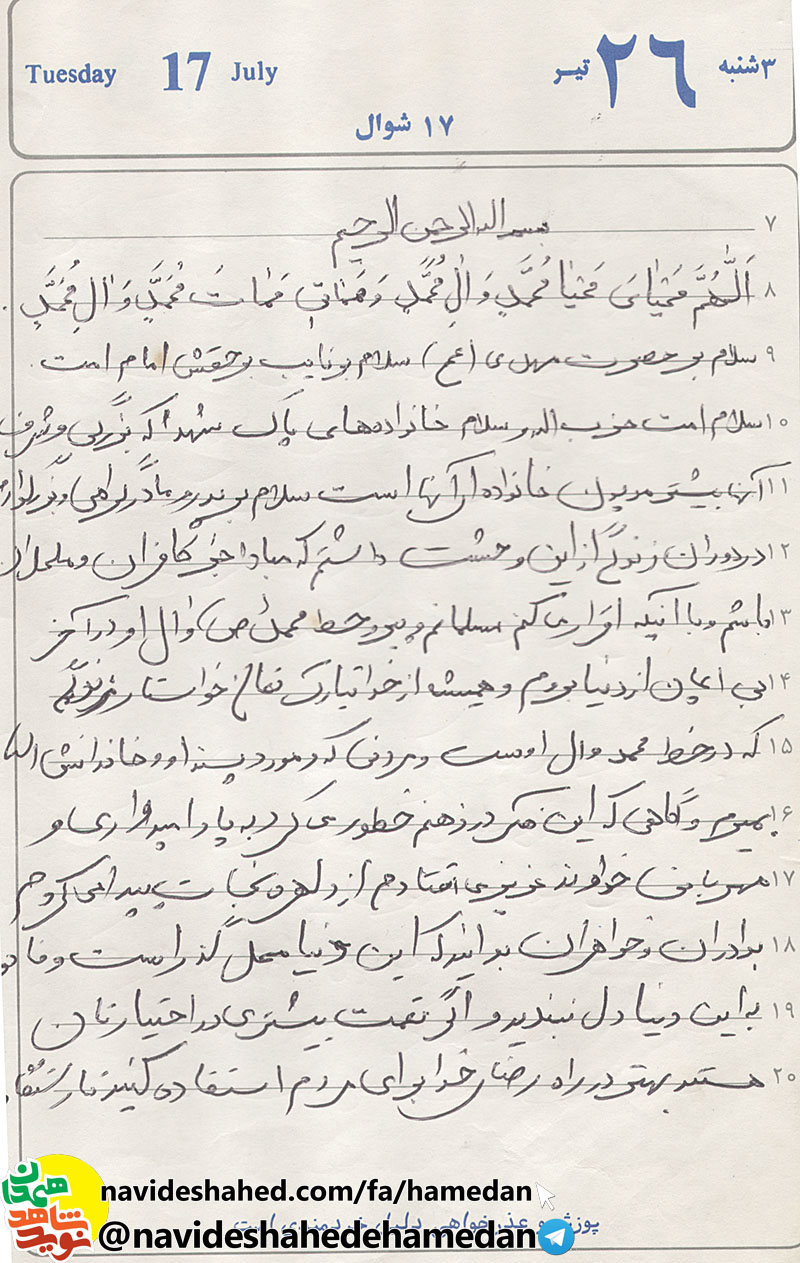 ۳شنبه ۲۶ تیر 17 July Tuesday
۱۷ شوال
۷ بسم الله الرحمن الرحیم
۸ اَللّهُمَّ مَحْیایَ مَحْیا مُحَمَّدٍ وَ الِ مُحَمَّدٍ وَ مَماتی مَماتَ مُحَمَّدٍ وَ الِ مُحَمَّدٍ
۹ سلام بر حضرت مهدی (عج) سلام بر نایب بر حقش امام امت
۱۰ سلام امت حزب الله و سلام خانواده‌های پاک شهدا که بزرگی و شرف
۱۱ آنها بیشتر مدیون خانواده آنها است سلام بر پدر و مادر گرامی و بزرگوارم
۱۲ در دوران زندگی از این وحشت داشتم که مبادا جزء کافران و ملحدان
۱۳ باشم و با اینکه اقرار می کنم مسلمانم و پیرو خط محمد (ص) وال او در آخر
۱۴ بی ایمان از دنیا بروم و همیشه از خدا تبارک تعالی خواستار زندگی
۱۵ که در خط محمد وال اوست و مردنی که در مورد پسند او و خاندانش است
۱۶ بمیرم و گاهی که این فکر در ذهنم خطور می کرد به یاد امیدواری و
۱۷ مهربانی خداوند عزیز می افتادم از دلهره نجات پیدا می کردم
۱۸ برادران و خواهران بدانید که این دنیا محل گذر است و
۱۹ به این دنیا دل نبندید و اگر نعمت بیشتری در اختیارتان
۲۰ هستند بهتر در راه رضای خدا برای مردم استفاده کنید
پوزش و عذرخواهی دلیل خردمندی است
نوید شاهد همدان
navideshahed.com/fa/hamedan
@navideshahedehamedan